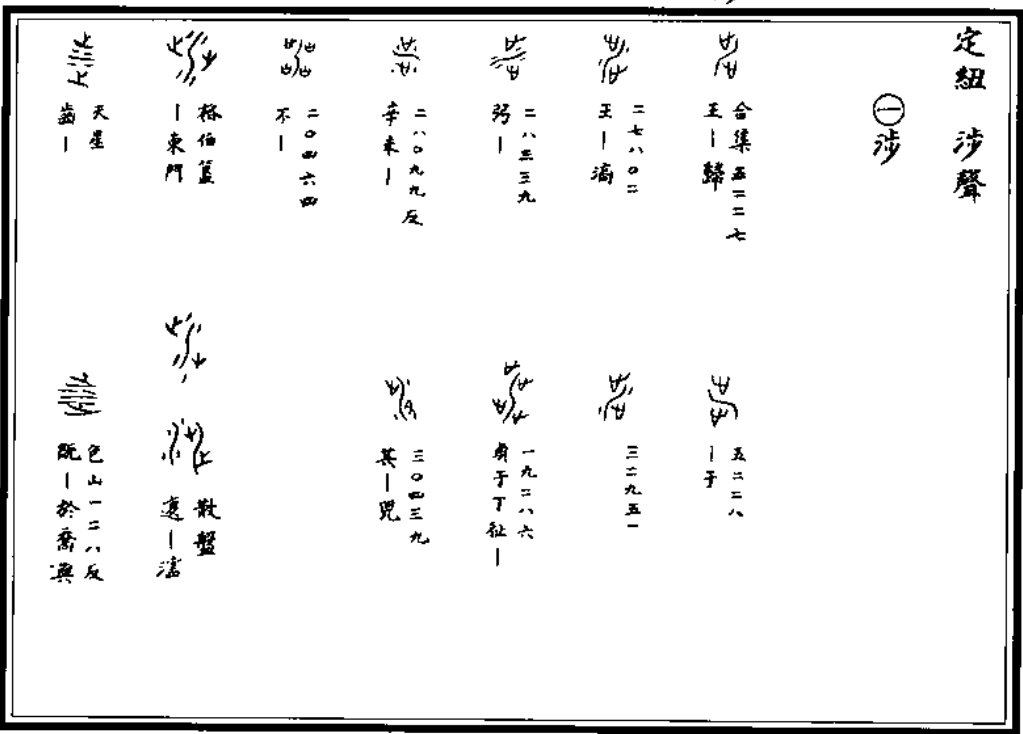 定紐 涉聲
㊀涉
合集五二二七
王—歸
五二二八
—于
二七八〇二
王—滴
三二九五一
二八三三九
弜—
一九二八六
貞于丁祉—
二八〇九九反
辛未—
三〇四三九
其—兕
二〇四六四
不—
格伯簋
—東門
散盤
—
天星
齒—
包山一二八反
既—於喬